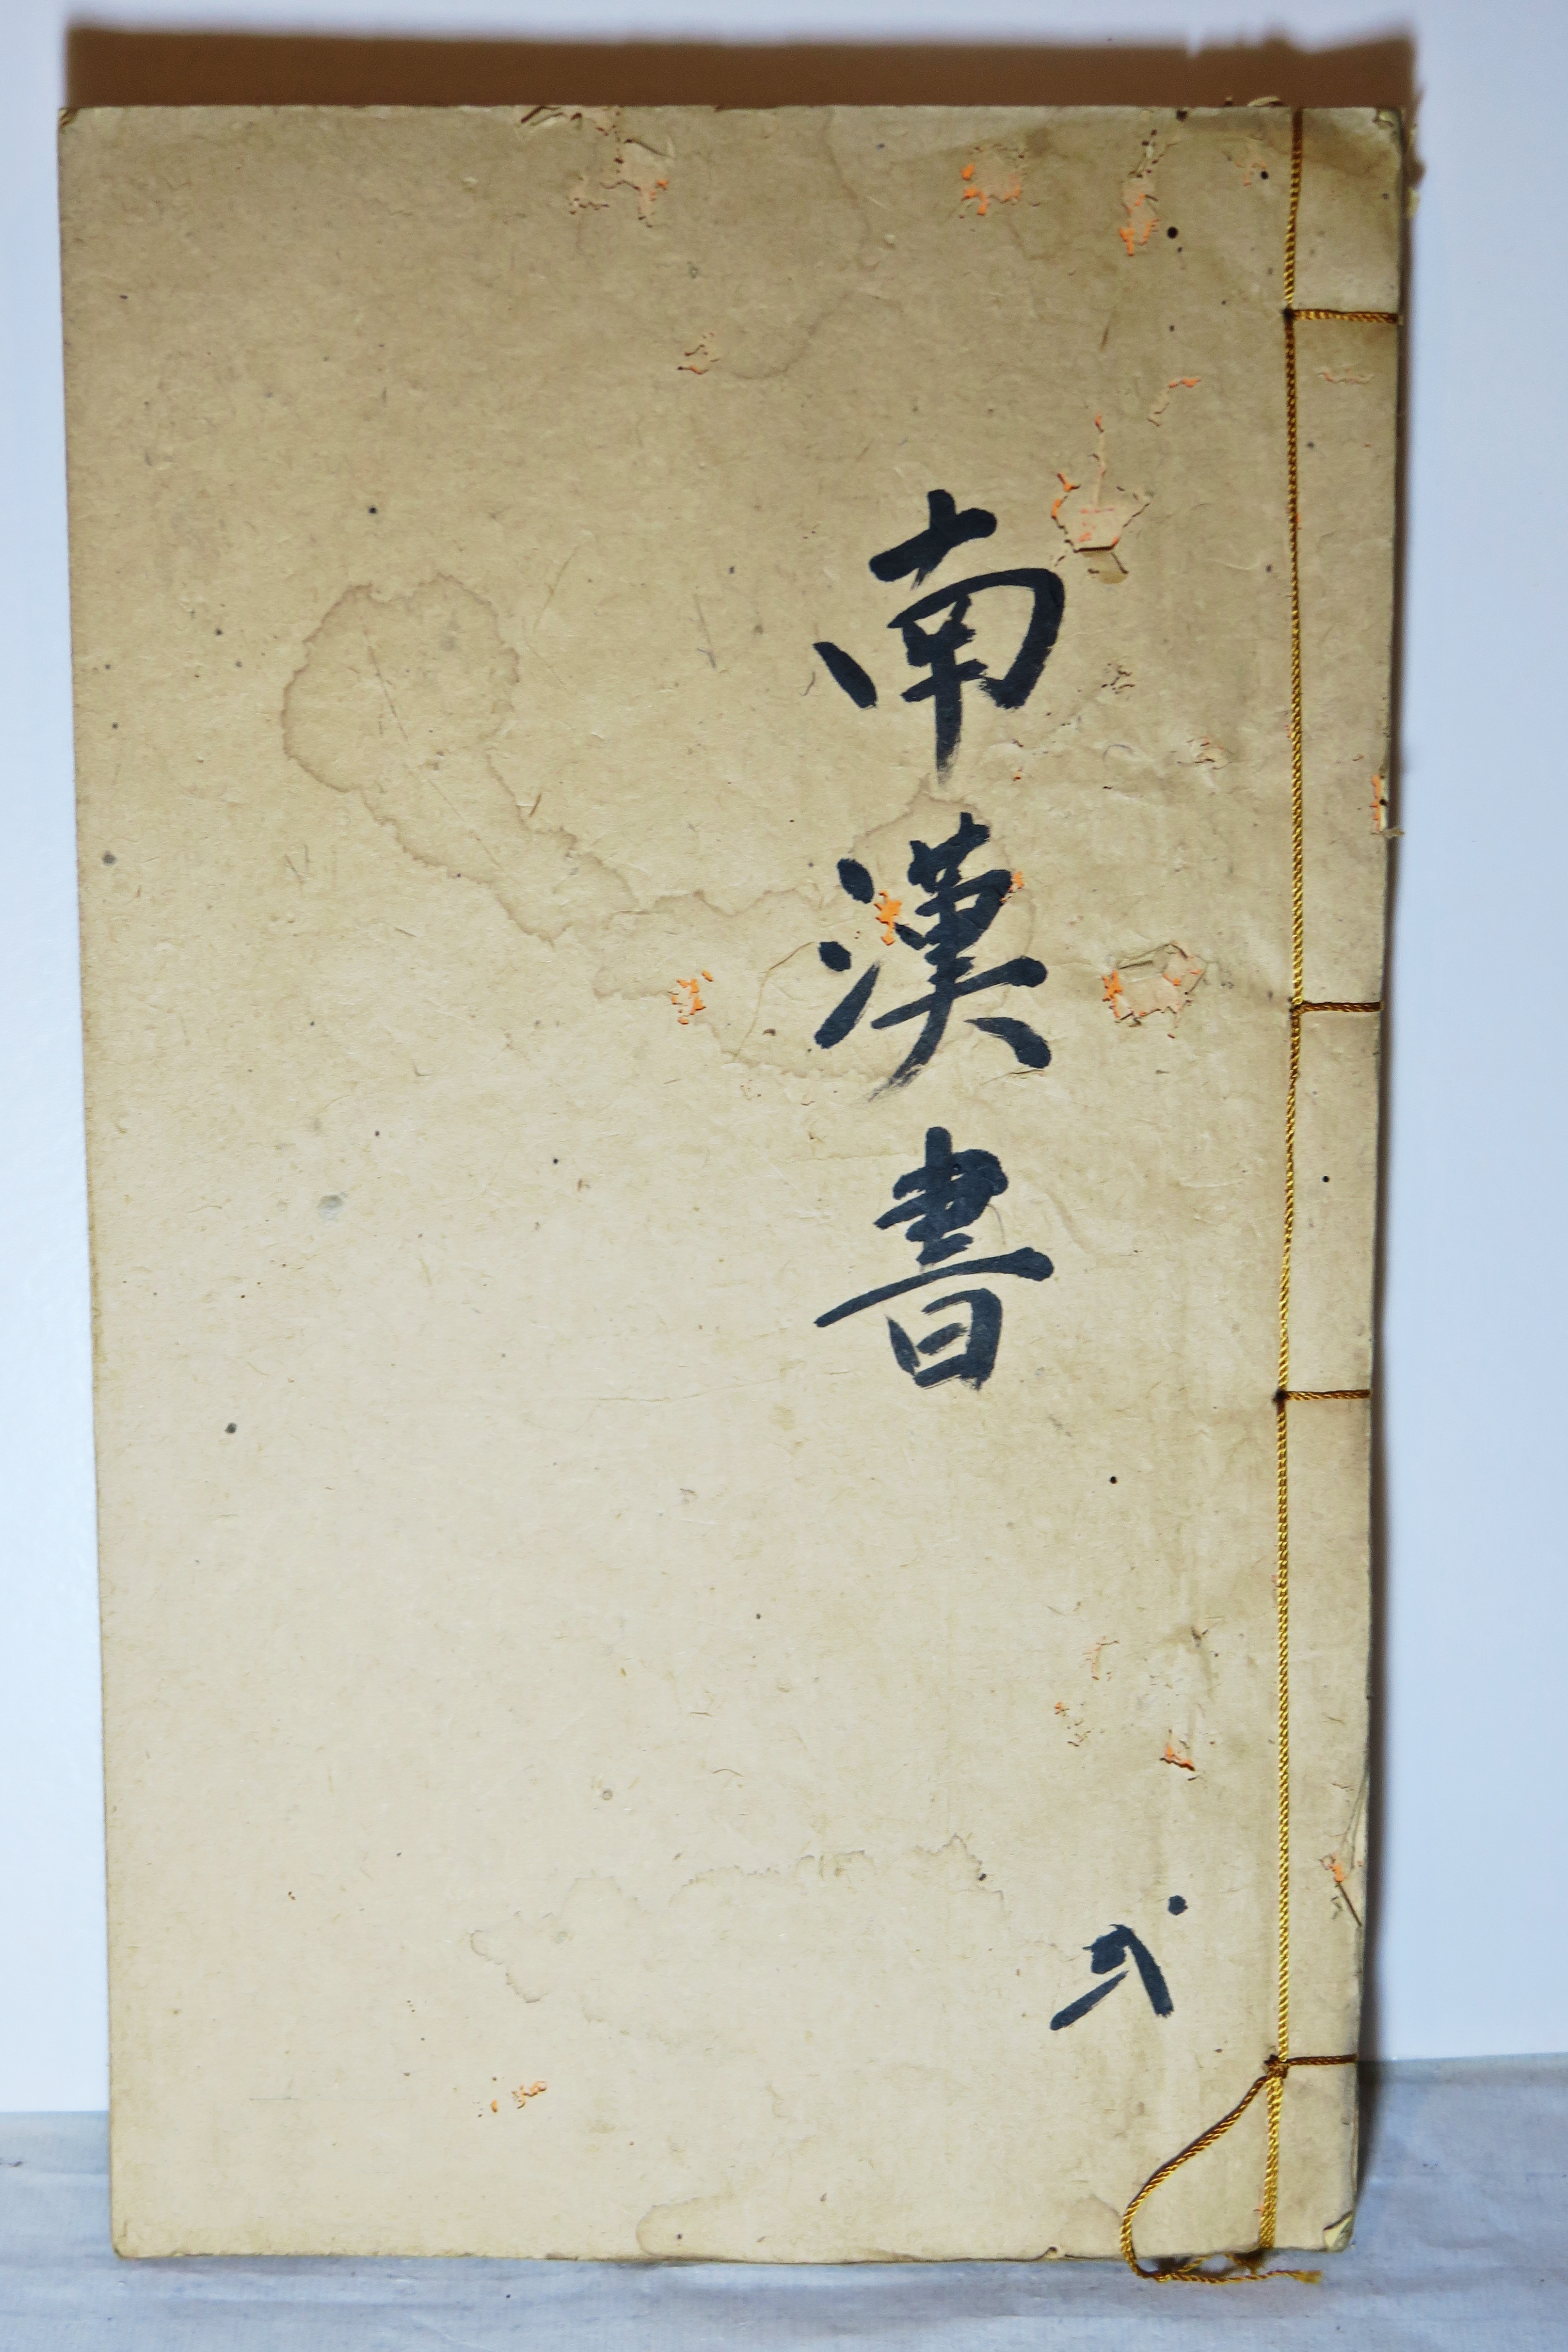 南漢書
弍